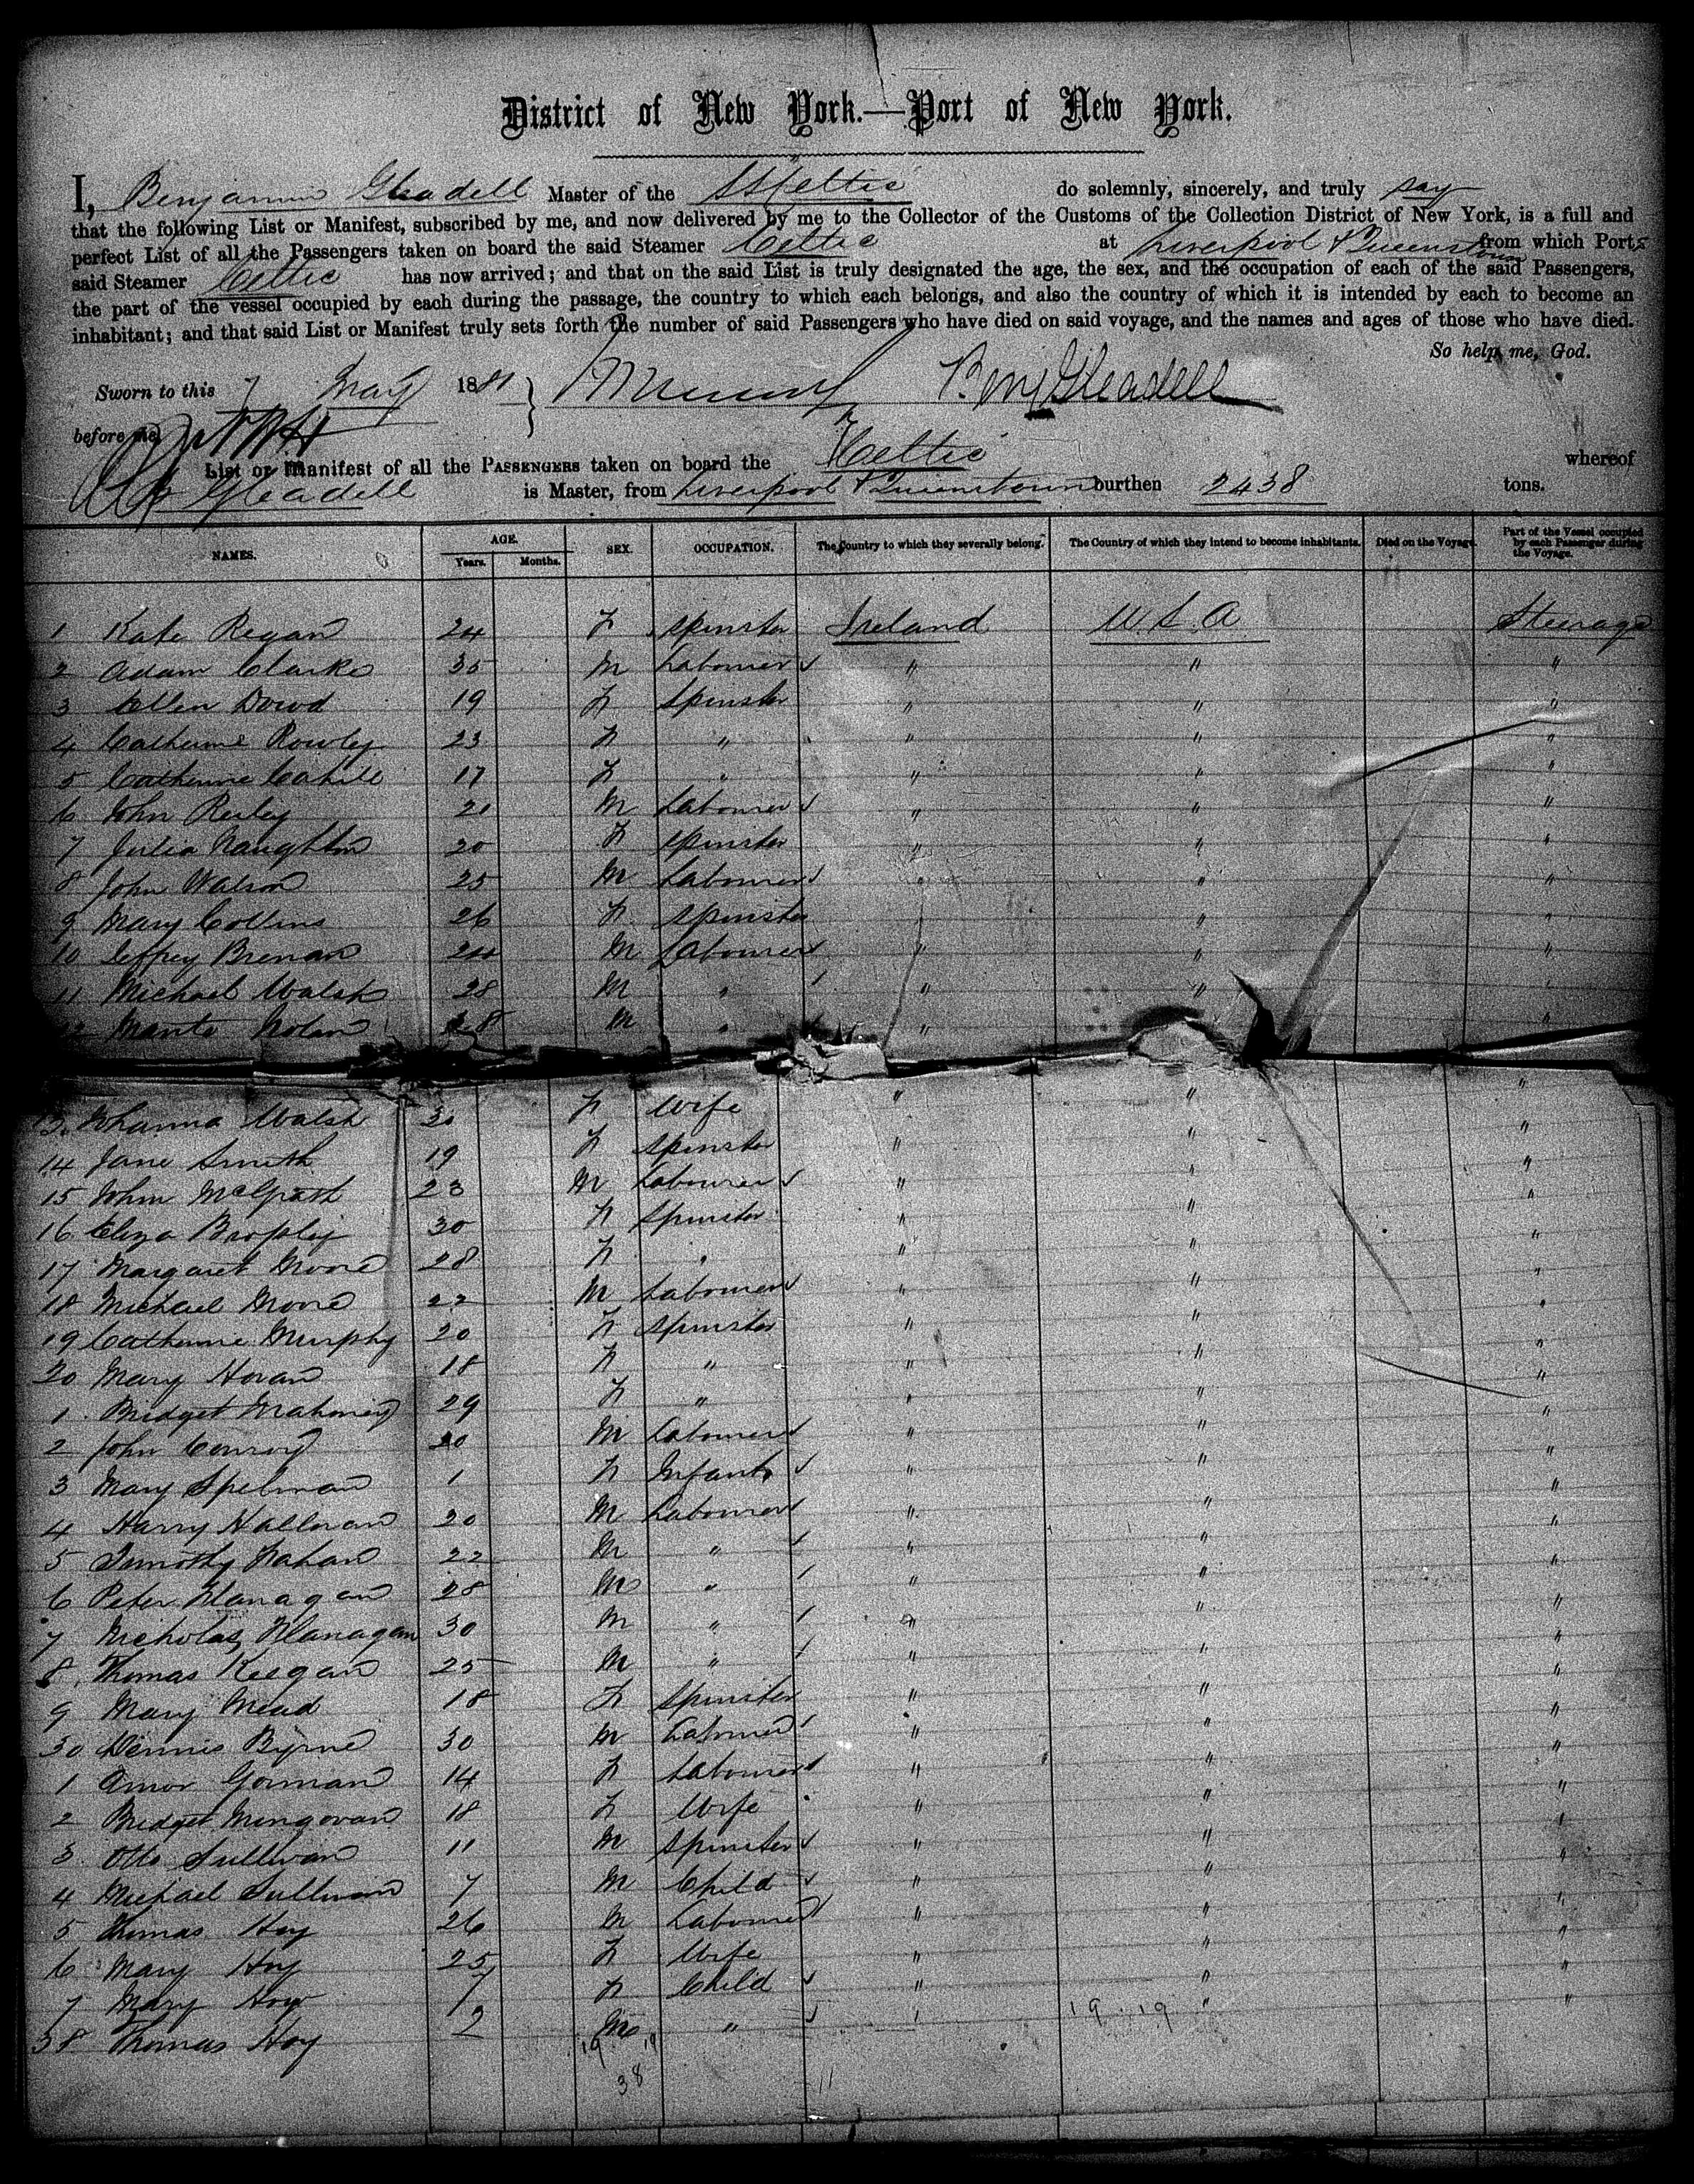 District of New York.—Port of New York.
I, Benjamin Gleadell Master of the SS Celtic do solemnly, sincerely, and truly say
that the following List or Manifest, subscribed by me, and now delivered by me to the Collector of the Customs of the Collection District of New York, is a full and
perfect List of all the Passengers taken on board the said Steamer Celtic at Liverpool & Queenstown from which Ports
said Steamer Celtic has now arrived; and that on the said List is truly designated the age, the sex, and the occupation of each of the said Passengers,
the part of the vessel occupied by each during the passage, the country to which each belongs, and also the country of which it is intended by each to become an
inhabitant; and that said List or Manifest truly sets forth the number of said Passengers who have died on said voyage, and the names and ages of those who have died.
So help me, God.
Sworn to this 7 May 1881 } Benj Gleadell
before me,
List or Manifest of all the PASSENGERS taken on board the Celtic whereof
Gleadell is Master, from Liverpool & Queenstown burthen 2438 tons.
NAMES. AGE. Years. Months. SEX. OCCUPATION. The Country to which they severally belong. The Country of which they intend to become inhabitants. Died on the Voyage. Part of the Vessel occupied by each Passenger during the Voyage.
1 Kate Regan 24 F Spinster Ireland U S A Steerage
2 Adam Clarke 35 M Labourer " " "
3 Ellen Dowd 19 F Spinster " " "
4 Catherine Rowley 23 F " " " "
5 Catherine Cahill 17 F " " " "
6 John Reiley 21 M Labourer " " "
7 Julia Naughton 20 F Spinster " " "
8 John Watson 25 M Labourer " " "
9 Mary Collins 26 F Spinster " " "
10 Jeffrey Brenan 24 M Labourer " " "
11 Michael Walsh 28 M " " " "
12 Nolan M " " " "
13 Johanna Walsh 30 F Wife " " "
14 Jane Smith 19 F Spinster " " "
15 John McGrath 23 M Labourer " " "
16 Eliza Brophy 30 F Spinster " " "
17 Margaret Moore 28 F " " " "
18 Michael Moore 22 M Labourer " " "
19 Catherine Murphy 20 F Spinster " " "
20 Mary Horan 18 F " " " "
1 Bridget Mahoney 29 F " " " "
2 John Conroy 20 M Labourer " " "
3 Mary Spelman 1 F Infant " " "
4 Harry Halloran 20 M Labourer " " "
5 Timothy Fahan 22 M " " " "
6 Peter Flanagan 28 M " " " "
7 Nicholas Flanagan 30 M " " " "
8 Thomas Keegan 25 M " " " "
9 Mary Mead 18 F Spinster " " "
30 Dennis Byrne 30 M Labourer " " "
1 Gorman 14 F Labourer " " "
2 Bridget Mingovan 18 F Wife " " "
3 Otto Sullivan 11 M Spinster " " "
4 Michael Sullivan 7 M Child " " "
5 Thomas Hoy 26 M Labourer " " "
6 Mary Hoy 25 F Wife " " "
7 Mary Hoy 7 F Child " " "
38 Thomas Hoy 2 M " " " "
19 19 19 19
38 11